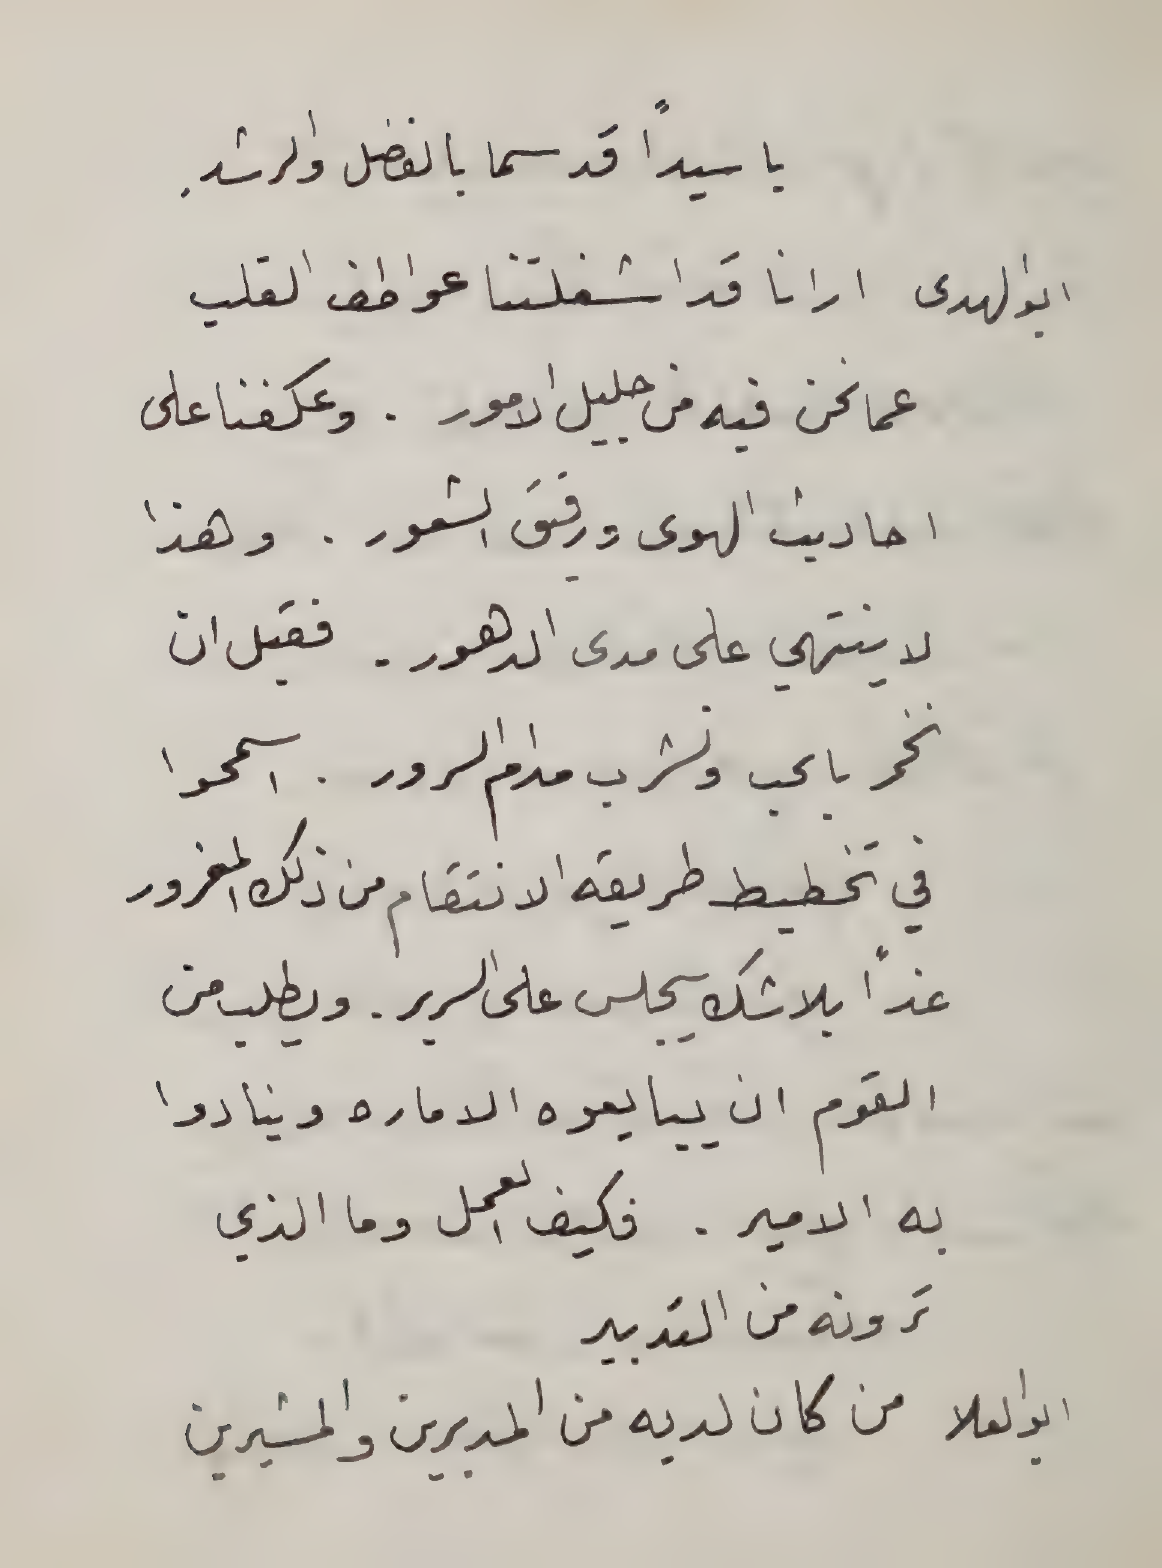 يا سيداً قد سما بالفضل والرشد.
ابو الهدى ارانا قد اشغلتنا عواطف القلب
عما نحن فيه من جليل الامور . وعكفنا على
احاديث الهوى ورقيق الشعور . وهذا
لا ينتهي على مدى الدهور . فقبل ان
نخمر بالحب ونشرب مدام السرور . اسمحوا
في تخطيط طريقه الانتقام من ذلك المغرور
غداً بلا شك سيجلس على السرير . ويطلب من
القوم ان يبايعوه الاماره وينادوا
به الامير . فكيف العمل وما الذي
ترونه من التدبير
ابو العلا من كان لديه من المدبرين والمشيرين